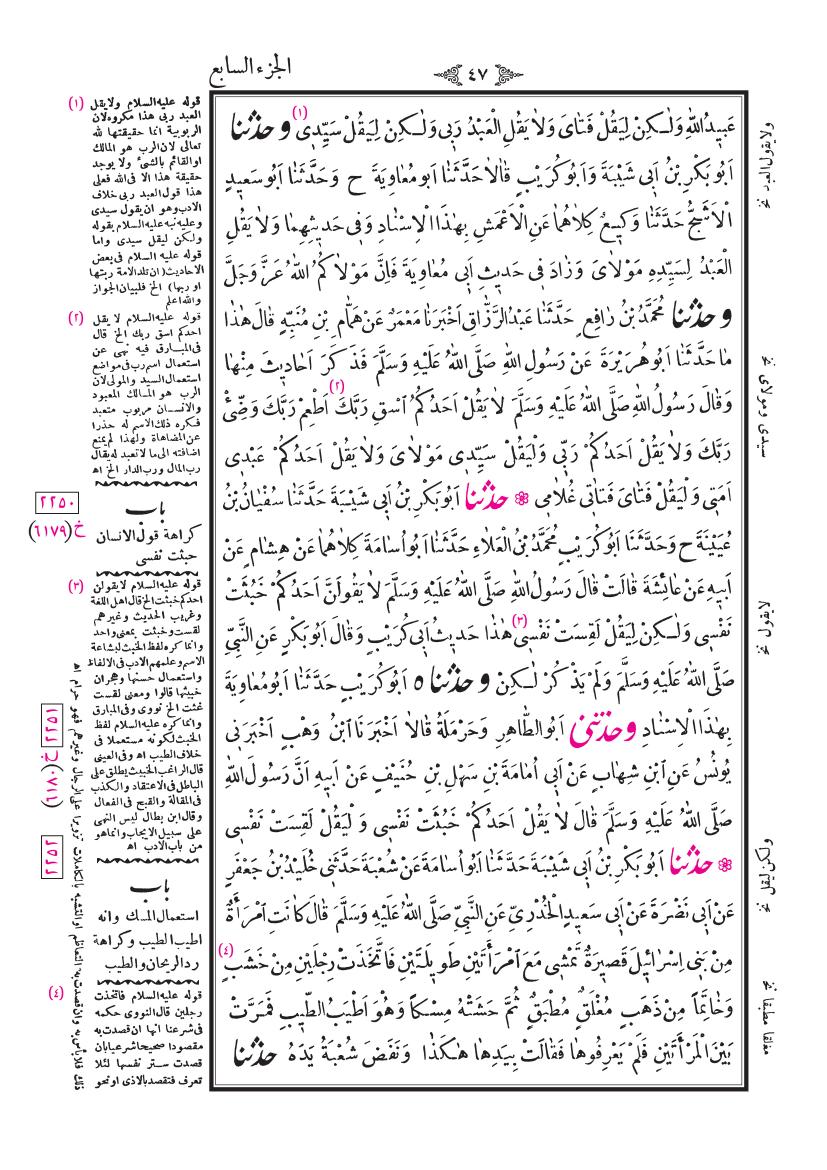 الجزء السابع
٤٧
عَبِيدُ اللهِ وَلٰكِنْ لِيَقُلْ فَتَاىَ وَلَا يَقُلِ الْعَبْدُ رَبِّى وَلٰكِنْ لِيَقُلْ سَيِّدِى (١) وحدثنا
اَبُو بَكْرِ بْنُ اَبِى شَيْبَةَ وَاَبُو كُرَيْبٍ قَالَا حَدَّثَنَا اَبُو مُعَاوِيَةَ ح وَحَدَّثَنَا اَبُو سَعِيدٍ
الْاَشَجُّ حَدَّثَنَا وَكِيعٌ كِلَاهُمَا عَنِ الْاَعْمَشِ بِهٰذَا الْاِسْنَادِ وَفِى حَدِيثِهِمَا وَلَا يَقُلِ
الْعَبْدُ لِسَيِّدِهِ مَوْلَاىَ وَزَادَ فِى حَدِيثِ اَبِى مُعَاوِيَةَ فَاِنَّ مَوْلَاكُمُ اللهُ عَزَّ وَجَلَّ
وحدثنا مُحَمَّدُ بْنُ رَافِعٍ حَدَّثَنَا عَبْدُ الرَّزَّاقِ اَخْبَرَنَا مَعْمَرٌ عَنْ هَمَّامِ بْنِ مُنَبِّهٍ قَالَ هٰذَا
مَا حَدَّثَنَا اَبُو هُرَيْرَةَ عَنْ رَسُولِ اللهِ صَلَّى اللهُ عَلَيْهِ وَسَلَّمَ فَذَكَرَ اَحَادِيثَ مِنْهَا
وَقَالَ رَسُولُ اللهِ صَلَّى اللهُ عَلَيْهِ وَسَلَّمَ لَا يَقُلْ اَحَدُكُمُ اسْقِ رَبَّكَ (٢) اَطْعِمْ رَبَّكَ وَضِّئْ
رَبَّكَ وَلَا يَقُلْ اَحَدُكُمْ رَبِّى وَلْيَقُلْ سَيِّدِى مَوْلَاىَ وَلَا يَقُلْ اَحَدُكُمْ عَبْدِى
اَمَتِى وَلْيَقُلْ فَتَاىَ فَتَاتِى غُلَامِى ❁ حدثنا اَبُو بَكْرِ بْنُ اَبِى شَيْبَةَ حَدَّثَنَا سُفْيَانُ بْنُ
عُيَيْنَةَ ح وَحَدَّثَنَا اَبُو كُرَيْبٍ مُحَمَّدُ بْنُ الْعَلَاءِ حَدَّثَنَا اَبُو اُسَامَةَ كِلَاهُمَا عَنْ هِشَامٍ عَنْ
اَبِيهِ عَنْ عَائِشَةَ قَالَتْ قَالَ رَسُولُ اللهِ صَلَّى اللهُ عَلَيْهِ وَسَلَّمَ لَا يَقُولَنَّ اَحَدُكُمْ خَبُثَتْ
نَفْسِى وَلٰكِنْ لِيَقُلْ لَقِسَتْ نَفْسِى (٣) هٰذَا حَدِيثُ اَبِى كُرَيْبٍ وَقَالَ اَبُو بَكْرٍ عَنِ النَّبِىِّ
صَلَّى اللهُ عَلَيْهِ وَسَلَّمَ وَلَمْ يَذْكُرْ لٰكِنْ وحدثناه اَبُو كُرَيْبٍ حَدَّثَنَا اَبُو مُعَاوِيَةَ
بِهٰذَا الْاِسْنَادِ وحدثنى اَبُو الطَّاهِرِ وَحَرْمَلَةُ قَالَا اَخْبَرَنَا ابْنُ وَهْبٍ اَخْبَرَنِى
يُونُسُ عَنِ ابْنِ شِهَابٍ عَنْ اَبِى اُمَامَةَ بْنِ سَهْلِ بْنِ حُنَيْفٍ عَنْ اَبِيهِ اَنَّ رَسُولَ اللهِ
صَلَّى اللهُ عَلَيْهِ وَسَلَّمَ قَالَ لَا يَقُلْ اَحَدُكُمْ خَبُثَتْ نَفْسِى وَلْيَقُلْ لَقِسَتْ نَفْسِى
❁ حدثنا اَبُو بَكْرِ بْنُ اَبِى شَيْبَةَ حَدَّثَنَا اَبُو اُسَامَةَ عَنْ شُعْبَةَ حَدَّثَنِى خُلَيْدُ بْنُ جَعْفَرٍ
عَنْ اَبِى نَضْرَةَ عَنْ اَبِى سَعِيدٍ الْخُدْرِىِّ عَنِ النَّبِىِّ صَلَّى اللهُ عَلَيْهِ وَسَلَّمَ قَالَ كَانَتِ امْرَأَةٌ
مِنْ بَنِى اِسْرَائِيلَ قَصِيرَةٌ تَمْشِى مَعَ امْرَأَتَيْنِ طَوِيلَتَيْنِ فَاتَّخَذَتْ رِجْلَيْنِ مِنْ خَشَبٍ (٤)
وَخَاتِمًا مِنْ ذَهَبٍ مُغْلَقٌ مُطْبَقٌ ثُمَّ حَشَتْهُ مِسْكًا وَهُوَ اَطْيَبُ الطِّيبِ فَمَرَّتْ
بَيْنَ الْمَرْأَتَيْنِ فَلَمْ يَعْرِفُوهَا فَقَالَتْ بِيَدِهَا هٰكَذَا وَنَفَضَ شُعْبَةُ يَدَهُ حدثنا
ولا يقول العبد نخ
سيدى ومولاى نخ
لا يقول نخ
ولكن ليقل نخ
مغلقا مطبقا نخ
(١) قوله عليه السلام ولا يقل
العبد ربى هذا مكروه لان
الربوبية انما حقيقتها لله
تعالى لان الرب هو المالك
او القائم بالشئ ولا يوجد
حقيقة هذا الا فى الله فعلى
هذا قول العبد ربى خلاف
الادب وهو ان يقول سيدى
وعليه نبه عليه السلام بقوله
ولكن ليقل سيدى واما
قوله عليه السلام فى بعض
الاحاديث (ان تلد الامة ربتها
او ربها) الخ فلبيان الجواز
والله اعلم
(٢) قوله عليه السلام لا يقل
احدكم اسق ربك الخ قال
فى المبارق فيه نهى عن
استعمال اسم رب فى مواضع
استعمال السيد والمولى لان
الرب هو المالك المعبود
والانسان مربوب متعبد
فكره ذلك الاسم له حذرا
عن المضاهاة ولهذا لم يمنع
اضافته الى ما لا تعبد له يقال
رب المال ورب الدار الخ اه
٢٢٥٠
خ (٦١٧٩)
باب
كراهة قول الانسان
خبثت نفسى
(٣) قوله عليه السلام لا يقولن
احدكم خبثت الخ قال اهل اللغة
وغريب الحديث وغيرهم
لقست وخبثت بمعنى واحد
وانما كره لفظ الخبث لبشاعة
الاسم وعلمهم الادب فى الالفاظ
واستعمال حسنها وهجران
خبيثها قالوا ومعنى لقست
غثت الخ نووى وفى المبارق
وانما كره عليه السلام لفظ
الخبث لكونه مستعملا فى
خلاف الطيب اه وفى العينى
قال الراغب الخبيث يطلق على
الباطل فى الاعتقاد والكذب
فى المقالة والقبح فى الفعال
وقال ابن بطال ليس النهى
على سبيل الايجاب وانما هو
من باب الادب اه
٢٢٥١
خ (٦١٨٠)
٢٢٥٢
باب
استعمال المسك وانه
اطيب الطيب وكراهة
رد الريحان والطيب
(٤) قوله عليه السلام فاتخذت
رجلين قال النووى حكمه
فى شرعنا انها ان قصدت به
مقصودا صحيحا شرعيا بان
قصدت ستر نفسها لئلا
تعرف فتقصد بالاذى او نحو
ذلك فلا بأس به وان قصدت به التعاظم او التشبه بالكاملات تزويرا على الرجال وغيرهم فهو حرام اه